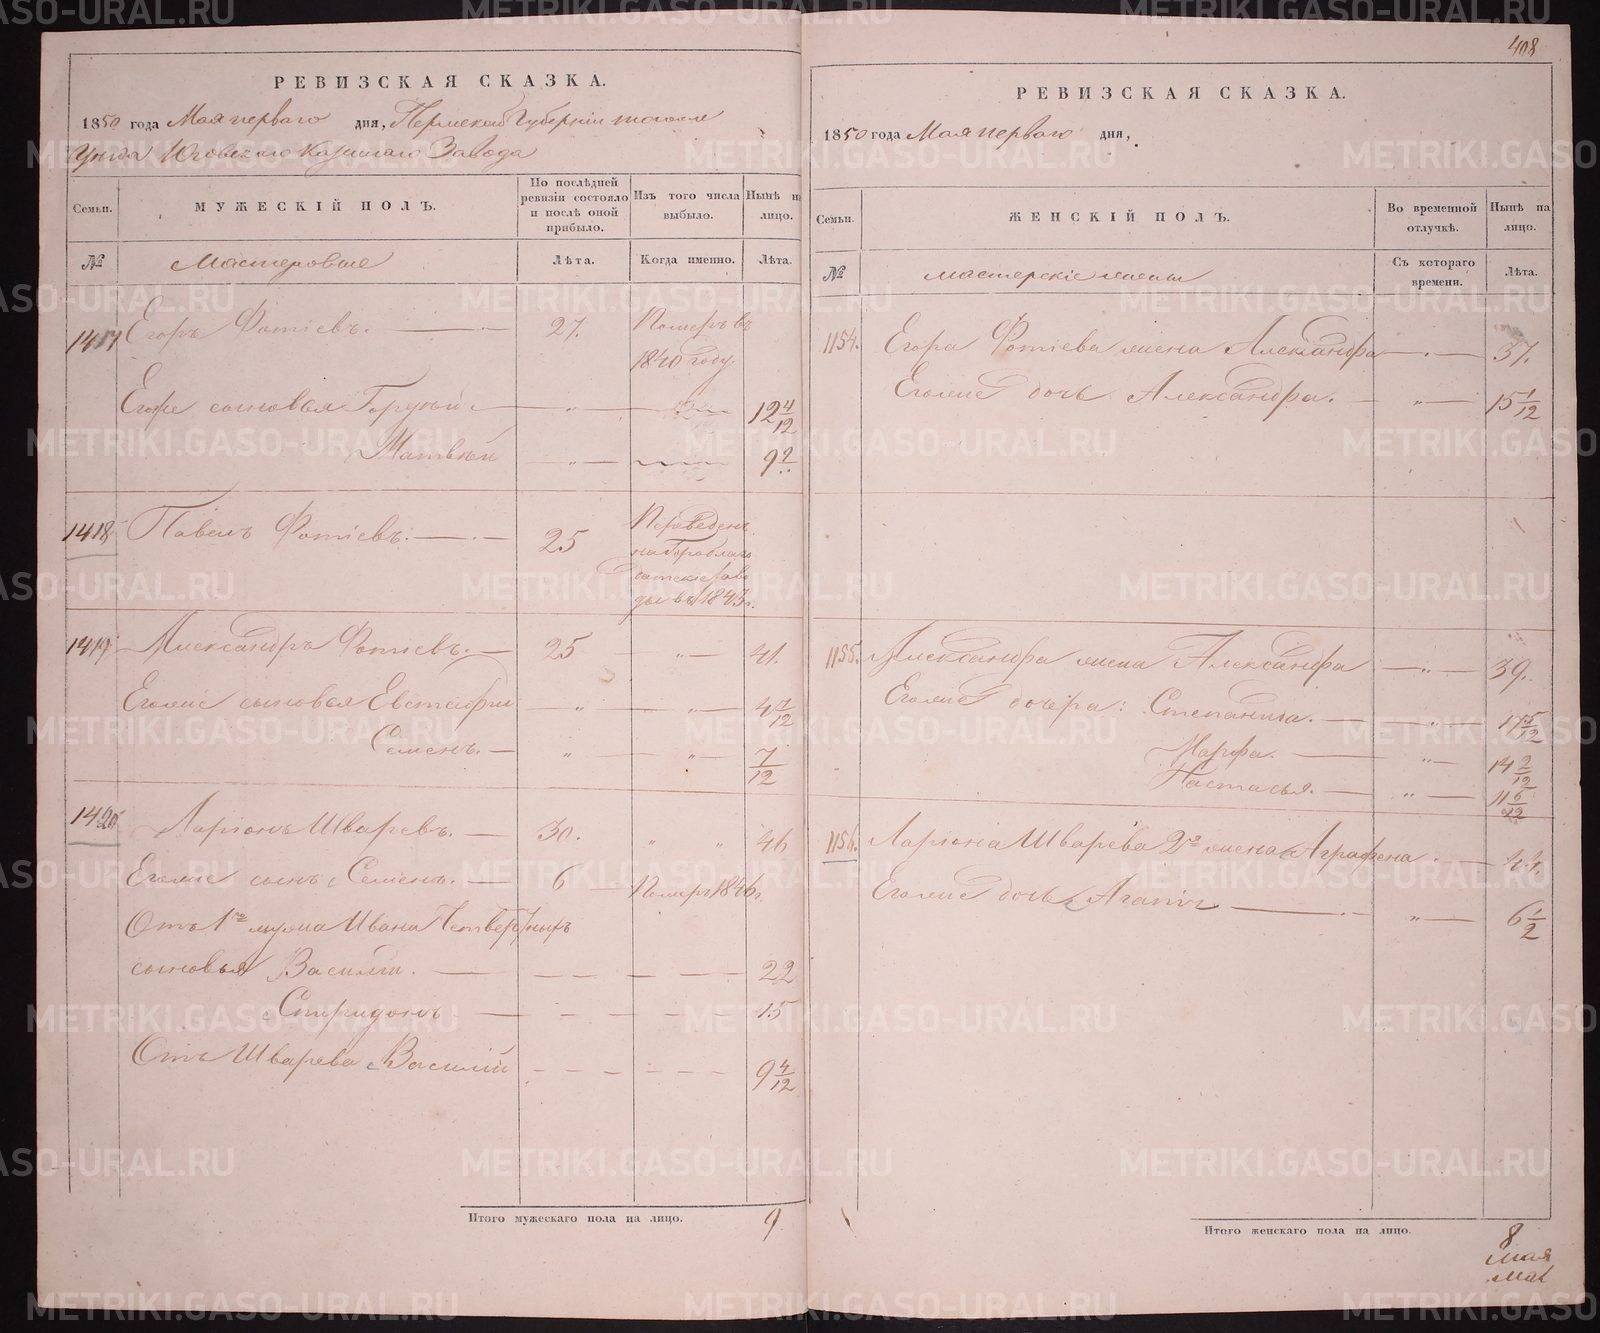 408
РЕВИЗСКАЯ СКАЗКА.
1850 года Мая перваго дня, Пермской Губернiи тогоже
Уезда Юговскаго Казеннаго Завода
Семьи.
МУЖЕСКIЙ ПОЛЪ.
По послѣдней ревизiи состояло и послѣ оной прибыло.
Изъ того числа выбыло.
Нынѣ на лицо.
№
Мастеровые
Лѣта.
Когда именно.
Лѣта.
1417 Егоръ Фотiевъ. 27. Померъ въ
1840 году.
сыновья Гордѣй " 12 4/12
Матвѣй " 9
1418 Павелъ Фотiевъ. 25 Переведенъ
на
въ 1843 г.
1419 Александръ Фотiевъ. 25 " 41.
Егоже сыновья Евстафiй " " 4
Семенъ. " " 7/12
1420 Ларiонъ Шваревъ. 30. " " 46
Егоже сынъ Семенъ. 6 Померъ 1846 г.
Отъ 1го мужа Ивана Четверухныхъ
сыновья Василiй. 22
Спиридонъ 15
Отъ Шварева Василiй 9 4/12
Итого мужескаго пола на лицо. 9
РЕВИЗСКАЯ СКАЗКА.
1850 года Мая перваго дня,
Семьи.
ЖЕНСКIЙ ПОЛЪ.
Во временной отлучкѣ.
Нынѣ на лицо.
№
мастерскiе жены
Съ котораго времени.
Лѣта.
1154. Егора Фотiева жена Александра " 37.
Егоже дочь Александра. " 15 1/12
1155. Александра жена Александра " 39.
Егоже дочера: Степанида. " 17 5/12
Марфа. " 14 2/12
Настасья. " 11 6/12
1156. Ларiона Шварева 2я жена Аграфена 44.
Егоже дочь " 6 1/2
Итого женскаго пола на лицо. 8
METRIKI.GASO-URAL.RU